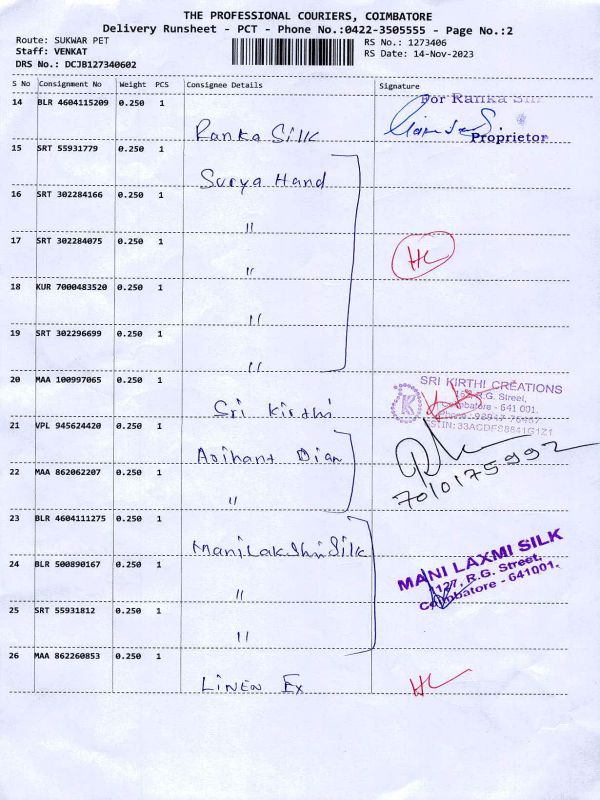 THE PROFESSIONAL COURIERS, COIMBATORE
Delivery Runsheet - PCT - Phone No.:0422-3505555 - Page No.:2
Route: SUKWAR PET
RS No.: 1273406
Staff: VENKAT
RS Date: 14-Nov-2023
DRS No.: DCJB127340602
S No Consignment No Weight PCS Consignee Details Signature
14 BLR 4604115209 0.250 1
For Ranka
Ranka Silk
Proprietor
15 SRT 55931779 0.250 1
Surya Hand
16 SRT 302284166 0.250 1
"
17 SRT 302284075 0.250 1
"
HC
18 KUR 7000483520 0.250 1
"
19 SRT 302296699 0.250 1
"
20 MAA 100997065 0.250 1
Sri Kirthi
SRI KIRTHI CREATIONS
R.G. Street,
Coimbatore - 641 001.
21 VPL 945624420 0.250 1
Arihant Dian
22 MAA 862062207 0.250 1
"
7010175992
23 BLR 4604111275 0.250 1
Mani Lakshmi Silk
MANI LAXMI SILK
127, R.G. Street,
Coimbatore - 641001.
24 BLR 500890167 0.250 1
"
25 SRT 55931812 0.250 1
"
26 MAA 862260853 0.250 1
Linen Ex
HC